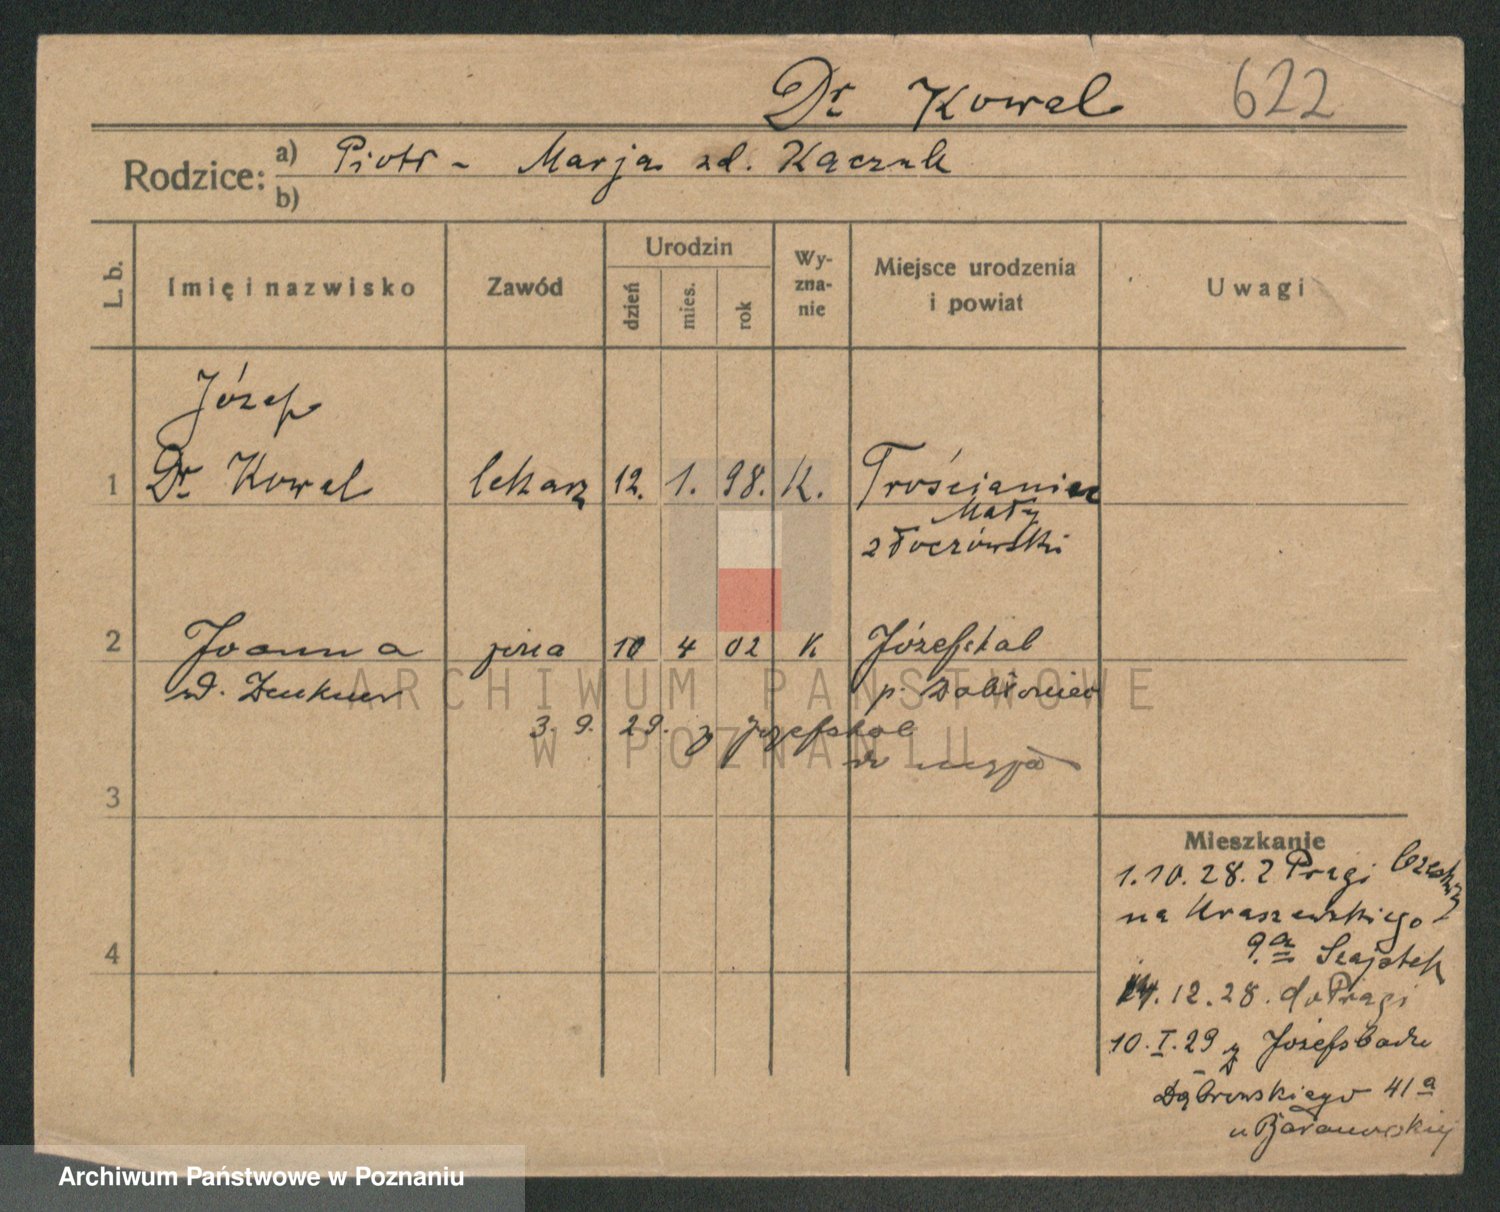 Dr Kowal 622
Rodzice: a) Piotr - Marja zd. Kączuk
b)
L. b. Imię i nazwisko Zawód Urodzin dzień mies. rok Wyznanie Miejsce urodzenia i powiat Uwagi
Józef
1 Dr Kowal lekarz 12. 1. 98. K. Trościaniec
Mały
złoczówski
2 Joanna żona 10 4 02 K Józefstal
zd. p.
3. 9. 29. z Jozefstal
3
Mieszkanie
1.10.28. z Pragi
na Kraszewskiego
9.a Szajstek
4
14.12.28. do Pragi
10.I.29 z
Dąbrowskiego 41a
u Baranowskiej
ARCHIWUM PAŃSTWOWE
W POZNANIU
Archiwum Państwowe w Poznaniu